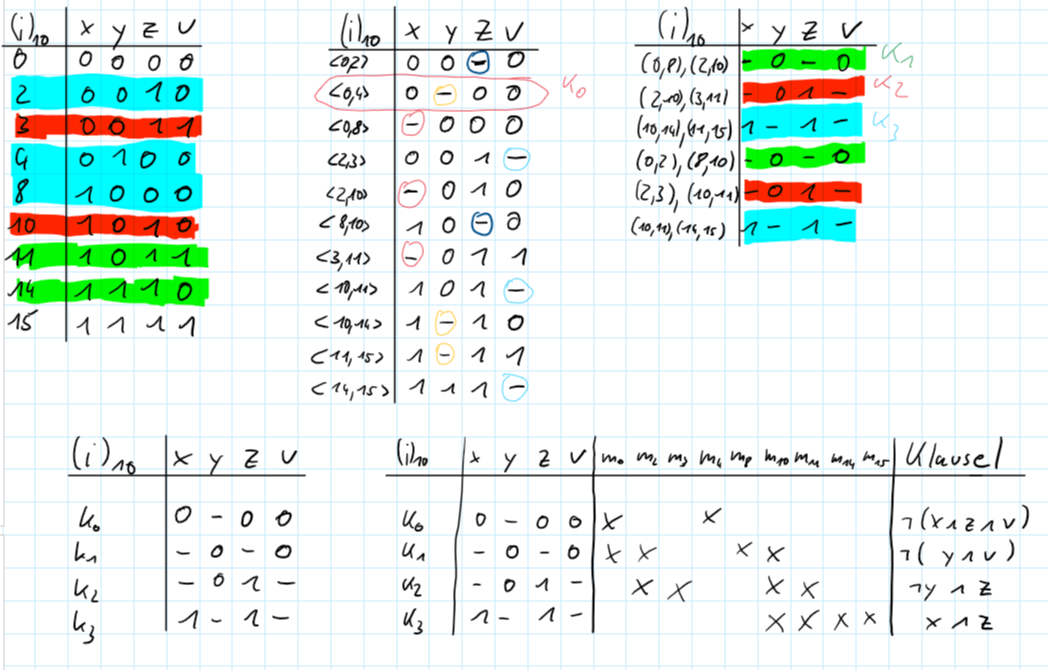 (i)₁₀ x y z v
0 0 0 0 0
2 0 0 1 0
3 0 0 1 1
4 0 1 0 0
8 1 0 0 0
10 1 0 1 0
11 1 0 1 1
14 1 1 1 0
15 1 1 1 1
(i)₁₀ x y z v
<0,2> 0 0 - 0
<0,4> 0 - 0 0 K₀
<0,8> - 0 0 0
<2,3> 0 0 1 -
<2,10> - 0 1 0
<8,10> 1 0 - 0
<3,11> - 0 1 1
<10,11> 1 0 1 -
<10,14> 1 - 1 0
<11,15> 1 - 1 1
<14,15> 1 1 1 -
(i)₁₀ x y z v
(0,8),(2,10) - 0 - 0 K₁
(2,10),(3,11) - 0 1 - K₂
(10,14),(11,15) 1 - 1 - K₃
(0,2),(8,10) - 0 - 0
(2,3),(10,11) - 0 1 -
(10,11),(14,15) 1 - 1 -
(i)₁₀ x y z v
K₀ 0 - 0 0
K₁ - 0 - 0
K₂ - 0 1 -
K₃ 1 - 1 -
(i)₁₀ x y z v m₀ m₂ m₃ m₄ m₈ m₁₀ m₁₁ m₁₄ m₁₅ Klausel
K₀ 0 - 0 0 x x ¬(x∧z∧v)
K₁ - 0 - 0 x x x x ¬(y∧v)
K₂ - 0 1 - x x x x ¬y ∧ z
K₃ 1 - 1 - x x x x x ∧ z